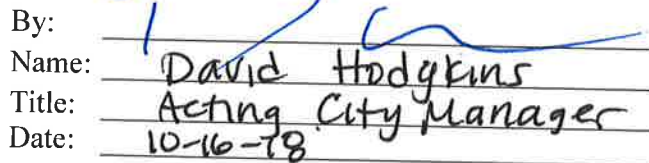 By:
Name: David Hodgkins
Title: Acting City Manager
Date: 10-16-18